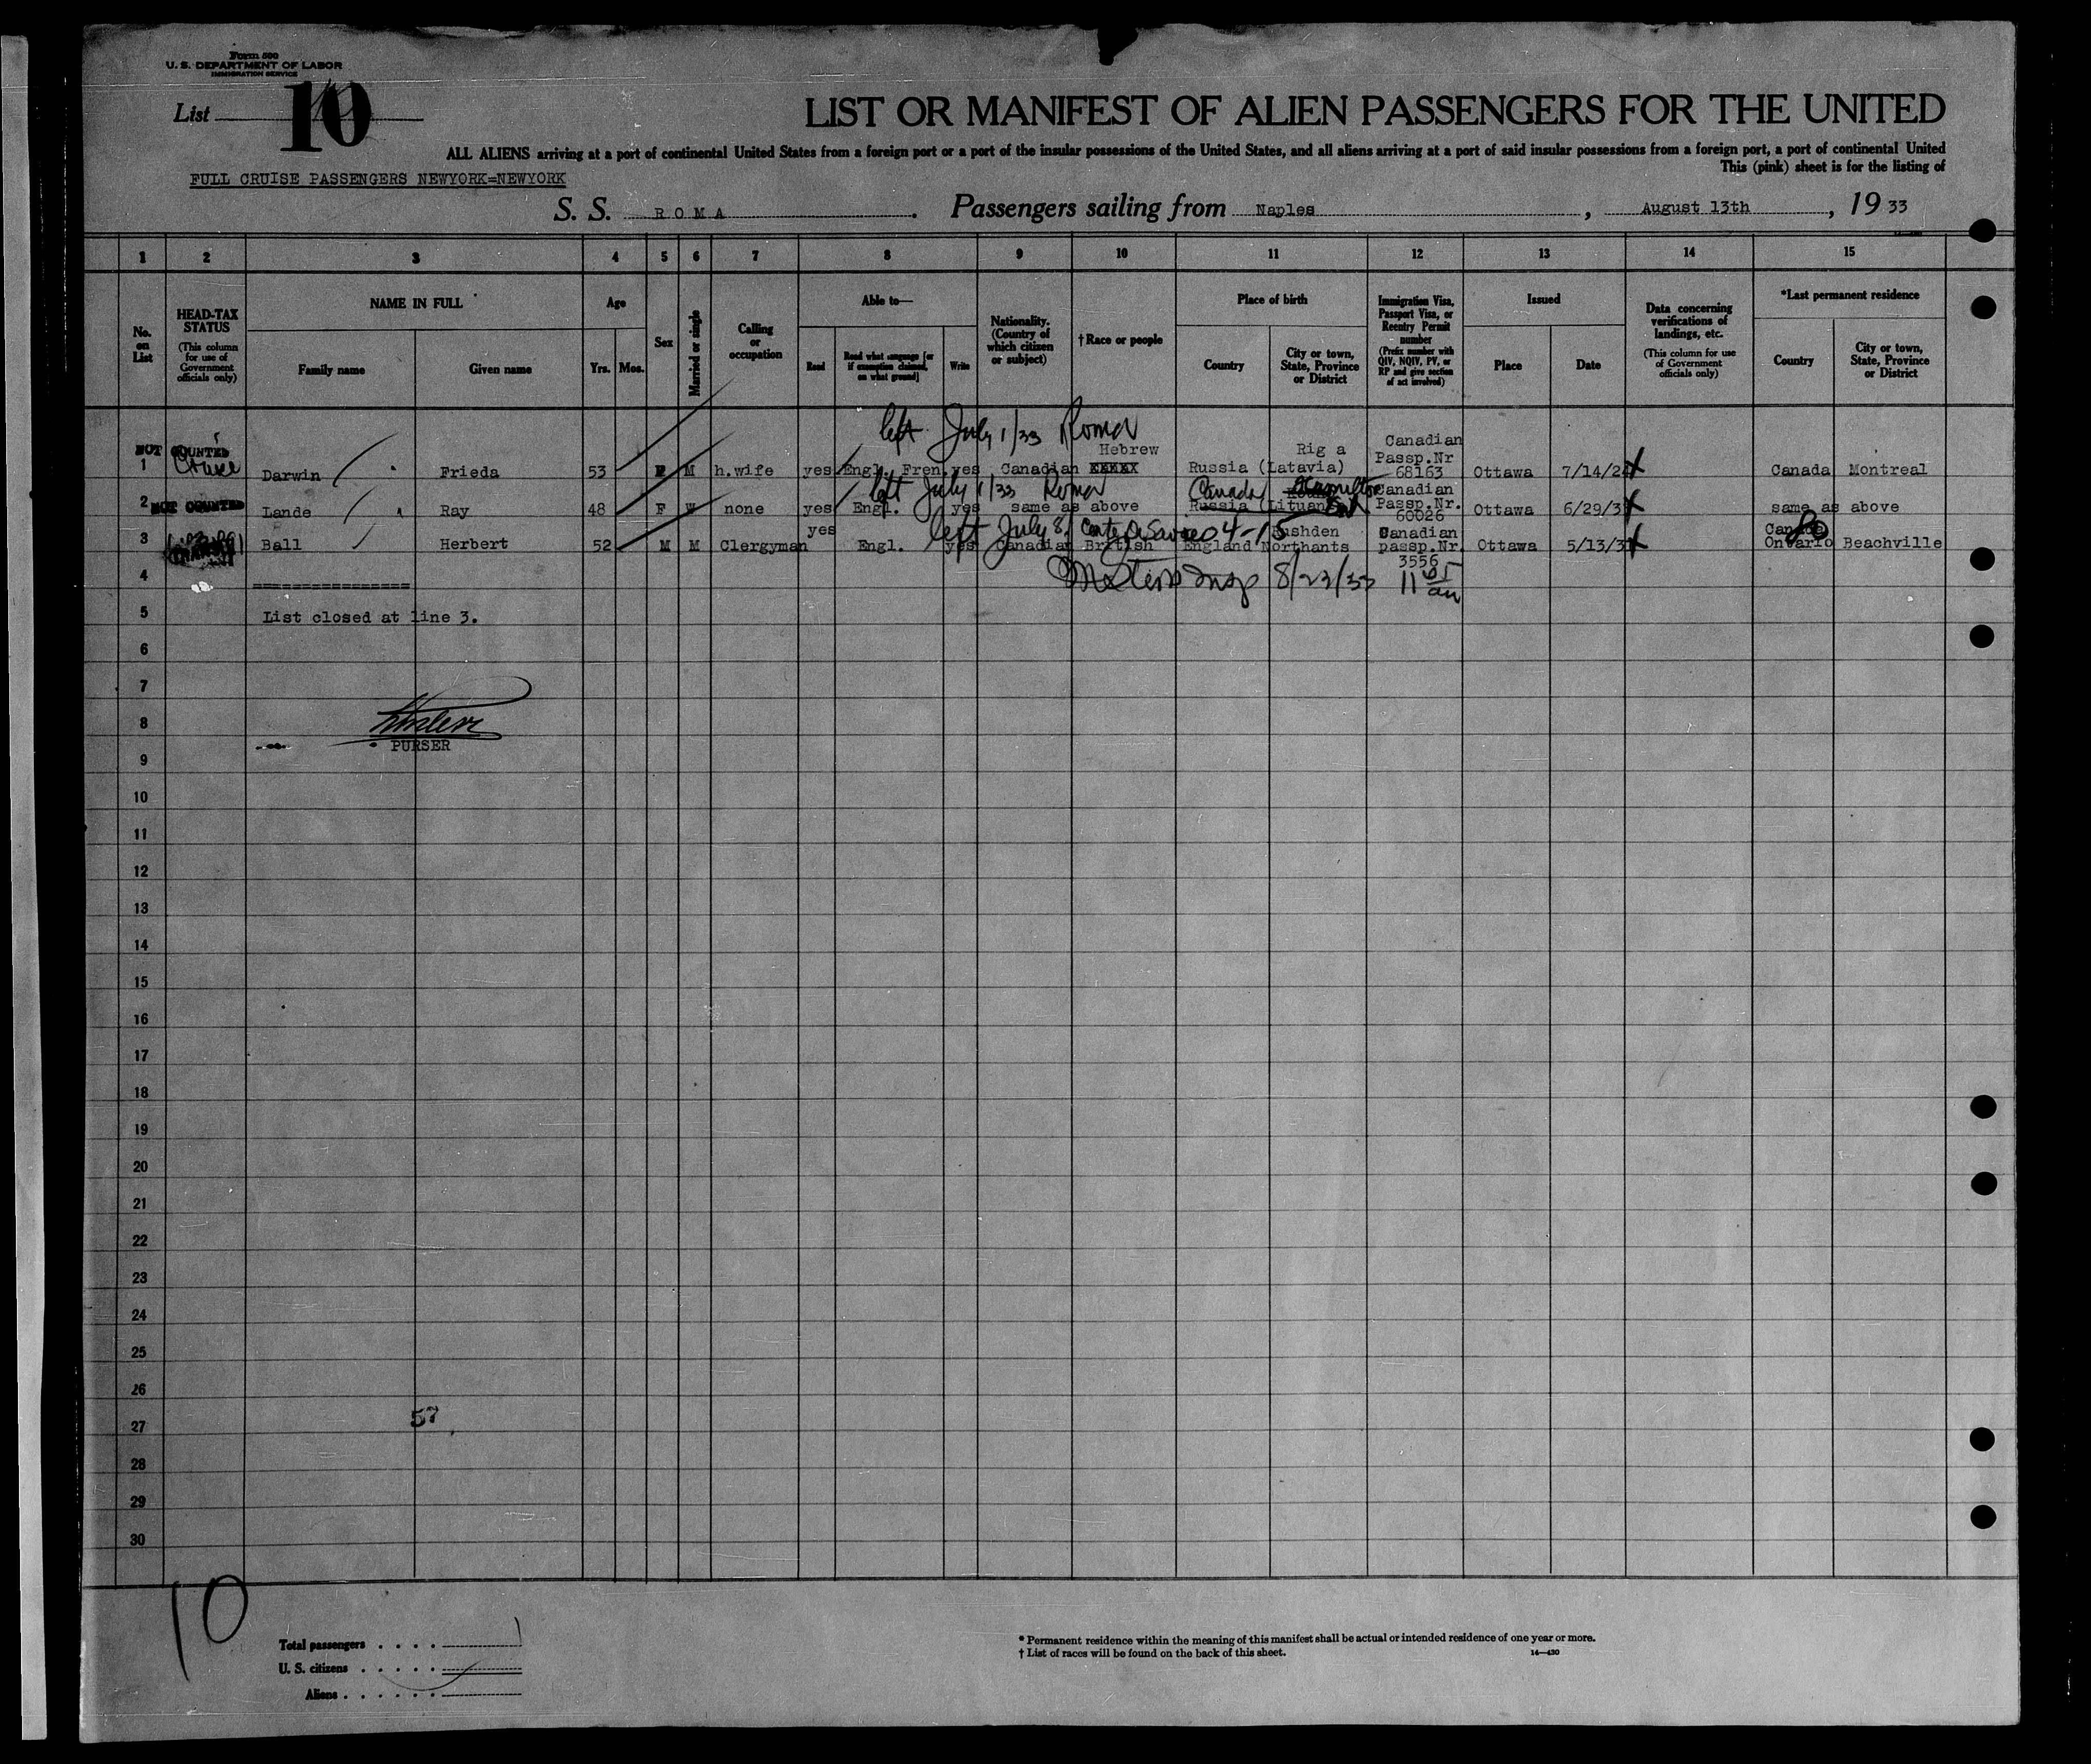 Form 500
U. S. DEPARTMENT OF LABOR
IMMIGRATION SERVICE
List 10
LIST OR MANIFEST OF ALIEN PASSENGERS FOR THE UNITED
ALL ALIENS arriving at a port of continental United States from a foreign port or a port of the insular possessions of the United States, and all aliens arriving at a port of said insular possessions from a foreign port, a port of continental United
This (pink) sheet is for the listing of
FULL CRUISE PASSENGERS NEWYORK=NEWYORK
S. S. ROMA. Passengers sailing from Naples, August 13th, 19 33
1 2 3 4 5 6 7 8 9 10 11 12 13 14 15
No. on List
HEAD-TAX STATUS
(This column for use of Government officials only)
NAME IN FULL
Family name Given name
Age
Yrs. Mos.
Sex
Married or single
Calling or occupation
Able to—
Read
Read what language [or if exemption claimed, on what ground]
Write
Nationality. (Country of which citizen or subject)
†Race or people
Place of birth
Country
City or town, State, Province or District
Immigration Visa, Passport Visa, or Reentry Permit number
(Prefix number with QIV, NQIV, PV, or RP and give section of act involved)
Issued
Place Date
Data concerning verifications of landings, etc.
(This column for use of Government officials only)
*Last permanent residence
Country
City or town, State, Province or District
left July 1/33 Roma
NOT COUNTED
1 Darwin Frieda 53 F M h.wife yes Engl. Fren. yes Canadian Hebrew Russia (Latavia) Rig a Canadian Passp.Nr 68163 Ottawa 7/14/2 Canada Montreal
left July 1/33 Roma
Canada Hamilton
2 NOT COUNTED Lande Ray 48 F W none yes Engl. yes same as above Russia (Lituan Canadian Passp.Nr. 60026 Ottawa 6/29/3 same as above
left July 8/ Conte di Savoia 04-15
3 Ball Herbert 52 M M Clergyman yes Engl. yes Canadian British England Rushden Northants Canadian passp.Nr. 3556 Ottawa 5/13/3 Canada Ontario Beachville
4 ================
Insp 8/23/33 11 am
5 List closed at line 3.
6
7
8
PURSER
9
10
11
12
13
14
15
16
17
18
19
20
21
22
23
24
25
26
27 57
28
29
30
10
Total passengers
U. S. citizens
Aliens
* Permanent residence within the meaning of this manifest shall be actual or intended residence of one year or more.
† List of races will be found on the back of this sheet.
14—430